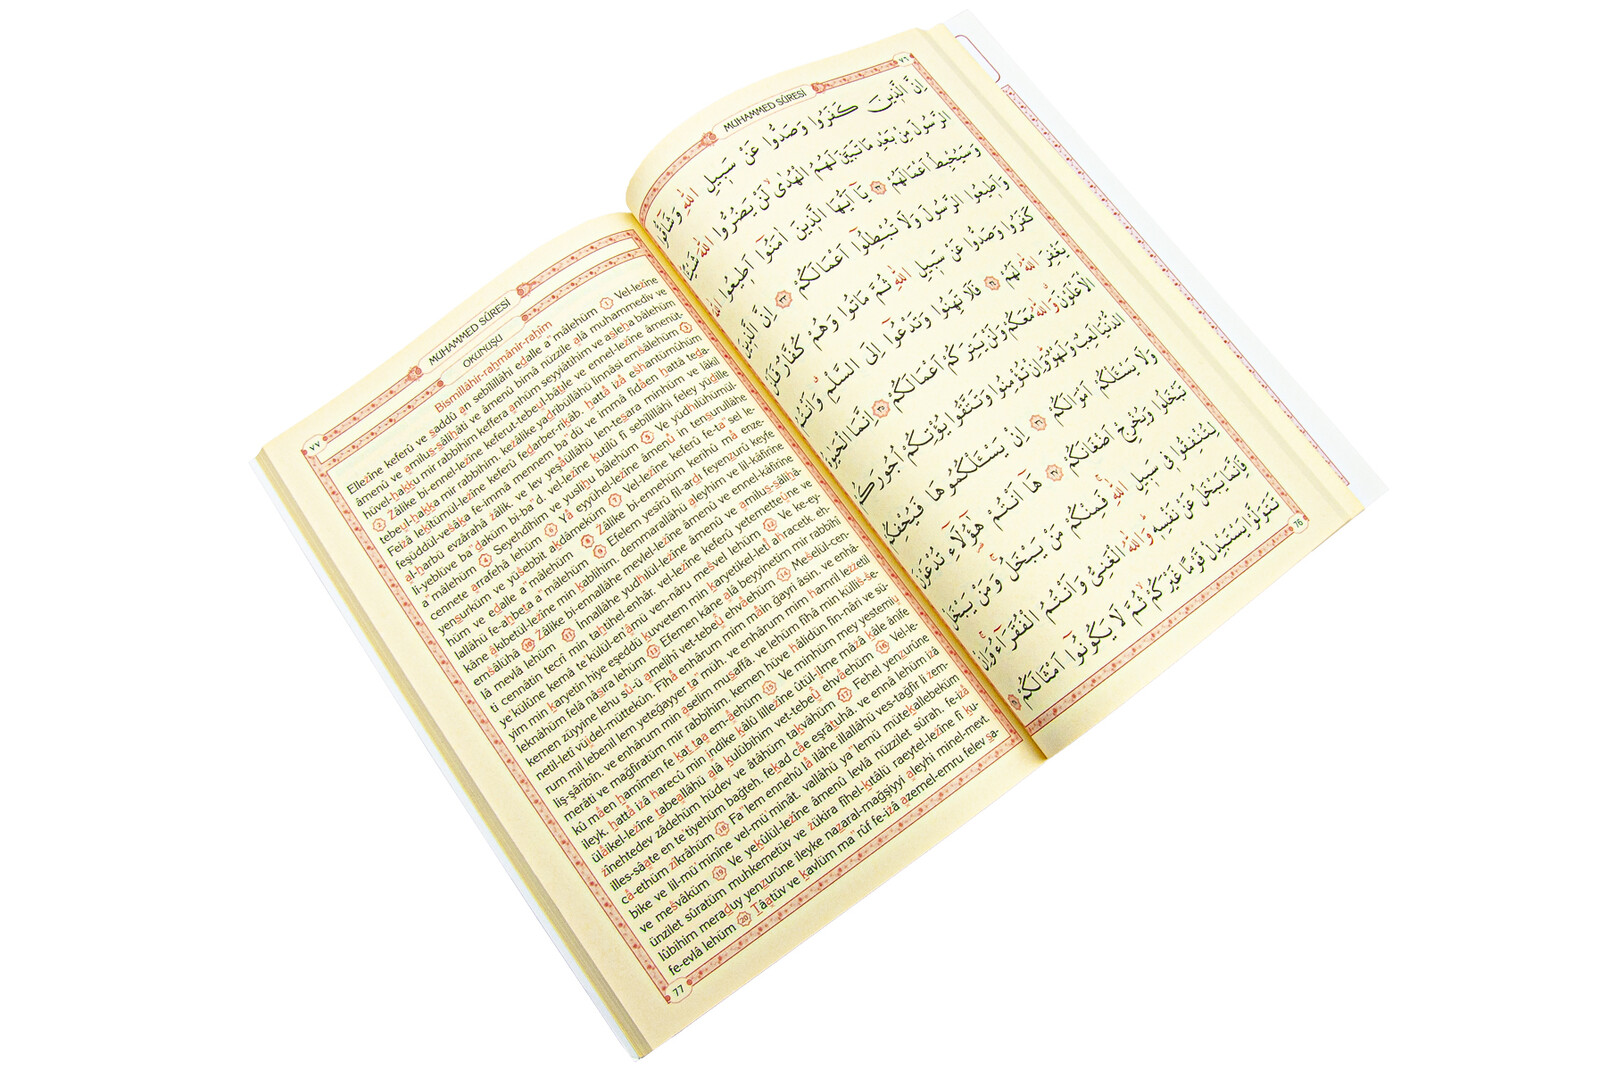 MUHAMMED SÛRESİ
٧٦
اِنَّ الَّذ۪ينَ كَفَرُوا وَصَدُّوا عَنْ سَب۪يلِ اللّٰهِ وَشَٓاقُّوا
الرَّسُولَ مِنْ بَعْدِ مَا تَبَيَّنَ لَهُمُ الْهُدٰىۙ لَنْ يَضُرُّوا اللّٰهَ شَيْـٔاًۜ
وَسَيُحْبِطُ اَعْمَالَهُمْ ﴿٣٢﴾ يَٓا اَيُّهَا الَّذ۪ينَ اٰمَنُٓوا اَط۪يعُوا اللّٰهَ
وَاَط۪يعُوا الرَّسُولَ وَلَا تُبْطِلُٓوا اَعْمَالَكُمْ ﴿٣٣﴾ اِنَّ الَّذ۪ينَ
كَفَرُوا وَصَدُّوا عَنْ سَب۪يلِ اللّٰهِ ثُمَّ مَاتُوا وَهُمْ كُفَّارٌ فَلَنْ
يَغْفِرَ اللّٰهُ لَهُمْ ﴿٣٤﴾ فَلَا تَهِنُوا وَتَدْعُٓوا اِلَى السَّلْمِۗ وَاَنْتُمُ
الْاَعْلَوْنَۗ وَاللّٰهُ مَعَكُمْ وَلَنْ يَتِرَكُمْ اَعْمَالَكُمْ ﴿٣٥﴾ اِنَّمَا الْحَيٰوةُ
الدُّنْيَا لَعِبٌ وَلَهْوٌۜ وَاِنْ تُؤْمِنُوا وَتَتَّقُوا يُؤْتِكُمْ اُجُورَكُمْ
وَلَا يَسْـَٔلْكُمْ اَمْوَالَكُمْ ﴿٣٦﴾ اِنْ يَسْـَٔلْكُمُوهَا فَيُحْفِكُمْ
تَبْخَلُوا وَيُخْرِجْ اَضْغَانَكُمْ ﴿٣٧﴾ هَٓا اَنْتُمْ هٰٓؤُ۬لَٓاءِ تُدْعَوْنَ
لِتُنْفِقُوا ف۪ي سَب۪يلِ اللّٰهِۚ فَمِنْكُمْ مَنْ يَبْخَلُۚ وَمَنْ يَبْخَلْ
فَاِنَّمَا يَبْخَلُ عَنْ نَفْسِه۪ۜ وَاللّٰهُ الْغَنِيُّ وَاَنْتُمُ الْفُقَرَٓاءُۚ وَاِنْ
تَتَوَلَّوْا يَسْتَبْدِلْ قَوْماً غَيْرَكُمْۙ ثُمَّ لَا يَكُونُٓوا اَمْثَالَكُمْ ﴿٣٨﴾
76
٧٧
MUHAMMED SÛRESİ
OKUNUŞU
Bismillâhir-rahmânir-rahîm
Ellezîne keferû ve saddû an sebîlillâhi edalle a'mâlehüm 1 Vel-lezîne
âmenû ve amilus-sâlihâti ve âmenû bimâ nüzzile alâ muhammediv ve
hüvel-hakku mir rabbihim keffera anhüm seyyiâtihim ve asleha bâlehüm
2 Zâlike bi-ennel-lezîne keferut-tebeul-bâtıle ve ennel-lezîne âmenüt-
tebeul-hakka mir rabbihim. kezâlike yadribüllâhü linnâsi emsâlehüm 3
Feizâ lekîtümül-lezîne keferû fedarber-rikâb. hattâ izâ eshantümûhüm
feşüddül-vesâka fe-immâ mennem ba'dü ve immâ fidâen hattâ teda-
al-harbü evzârahâ zâlik. ve lev yeşâüllâhü len-tesara minhüm ve lâkil
li-yeblüve ba'daküm bi-ba'd. vel-lezîne kutilû fî sebîlillâhi feley yüdılle
a'mâlehüm 4 Seyehdîhim ve yuslihu bâlehüm 5 Ve yüdhılühümül-
cennete arrafehâ lehüm 6 Yâ eyyühel-lezîne âmenû in tensurullâhe
yensurküm ve yüsebbit akdâmeküm 7 Vel-lezîne keferû fe-ta'sel le-
hüm ve edalle a'mâlehüm 8 Zâlike bi-ennehüm kerihû mâ enze-
lallâhü fe-ahbeta a'mâlehüm 9 Efelem yesîrû fil-ardı feyenzurû keyfe
kâne âkıbetül-lezîne min kablihim. demmerallâhü aleyhim ve lil-kâfirîne
emsâlühâ 10 Zâlike bi-ennallâhe mevlel-lezîne âmenû ve ennel-kâfirîne
lâ mevlâ lehüm 11 İnnallâhe yudhılül-lezîne âmenû ve amilus-sâlihâ-
ti cennâtin tecrî min tahtihel-enhâr. vel-lezîne keferû yetemetteûne ve
ye'külûne kemâ te'külül-en'âmü ven-nâru mesvel lehüm 12 Ve ke-ey-
yim min karyetin hiye eşeddü kuvvetem min karyetikel-letî ahracetk eh-
leknâhüm felâ nâsıra lehüm 13 Efemen kâne alâ beyyinetim mir rabbihî
kemen züyyine lehu sû-ü amelihî vet-tebeû ehvâehüm 14 Meselül-cen-
netil-letî vüidel-müttekûn. Fîhâ enhârum mim mâin ğayri âsin. ve enhâ-
rum mil lebenil lem yeteğayyer ta'müh. ve enhârum mim hamril lezzetil
liş-şâribîn. ve enhârum min aselim musaffâ. ve lehüm fîhâ min külliş-se-
merâti ve mağfiratüm mir rabbihim. kemen hüve hâlidün fin-nâri ve sü-
kû mâen hamîmen fe kat taa em-âehüm 15 Ve minhüm mey yestemiu
ileyk. hattâ izâ haracû min ındike kâlû lillezîne ûtül-ılme mâzâ kâle ânife
ülâikel-lezîne tabeallâhü alâ kulûbihim vet-tebeû ehvâehüm 16 Vel-le-
zînehtedev zâdehüm hüdev ve âtâhüm takvâhüm 17 Fehel yenzurûne
illes-sâate en te'tiyehüm bağteh. fekad câe eşrâtuhâ. ve ennâ lehüm izâ
câ-ethüm zikrâhüm 18 Fa'lem ennehû lâ ilâhe illallâhü ves-tağfir li zem-
bike ve lil-mü'minîne vel-mü'minât. vallâhü ya'lemü mütekallebeküm
ve mesvâküm 19 Ve yekûlül-lezîne âmenû levlâ nüzzilet sûrah. fe-izâ
ünzilet sûratüm muhkemetüv ve zükira fîhel-kıtâlü raeytel-lezîne fî ku-
lûbihim meraduy yenzurûne ileyke nazaral-mağşiyyi aleyhi minel-mevt.
fe-evlâ lehüm 20 Tâatüv ve kavlüm ma'rûf fe-izâ azemel-emru felev sa-
77